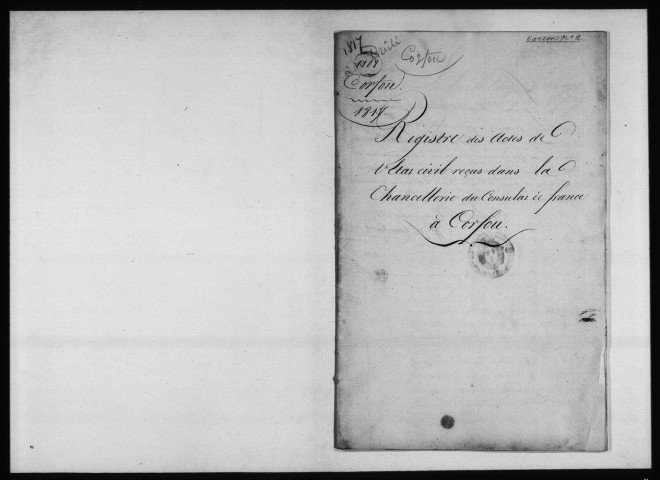 1817
Corfou
Corfou.
1817.
Registre des Actes de
l'Etat civil reçus dans la
Chancellerie du Consulat de france
à Corfou.